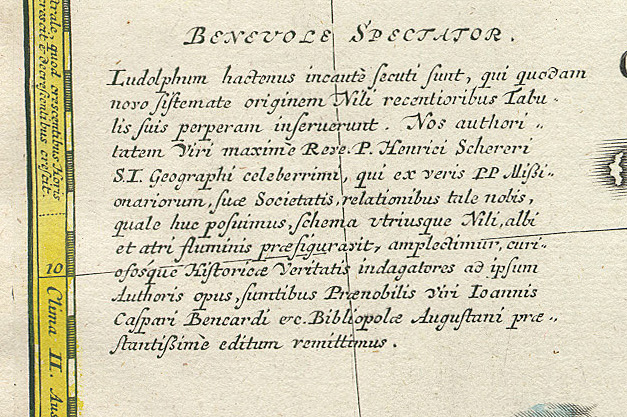 BENEVOLE SPECTATOR.
Ludolphum hactenus incautè secuti sunt, qui quodam
novo sistemate originem Nili recentioribus Tabu-
lis suis perperam inseruerunt. Nos authori-
tatem Viri maximè Reve. P. Henrici Schereri
S.I. Geographi celeberrimi, qui ex veris P.P. Missi-
onariorum, suæ Societatis, relationibus tale nobis,
quale huc posuimus, schema vtriusque Nili, albi
et atri fluminis præfiguravit, amplectimur, curi-
ososque Historicæ Veritatis indagatores ad ipsum
Authoris opus, sumtibus Prænobilis Viri Ioannis
Caspari Bencardi &c. Bibliopolæ Augustani præ-
stantissimè editum remittimus.
trale, quod crescentibus Horis
crescit, & decrescentibus crescit.
10
Clima II. Aus